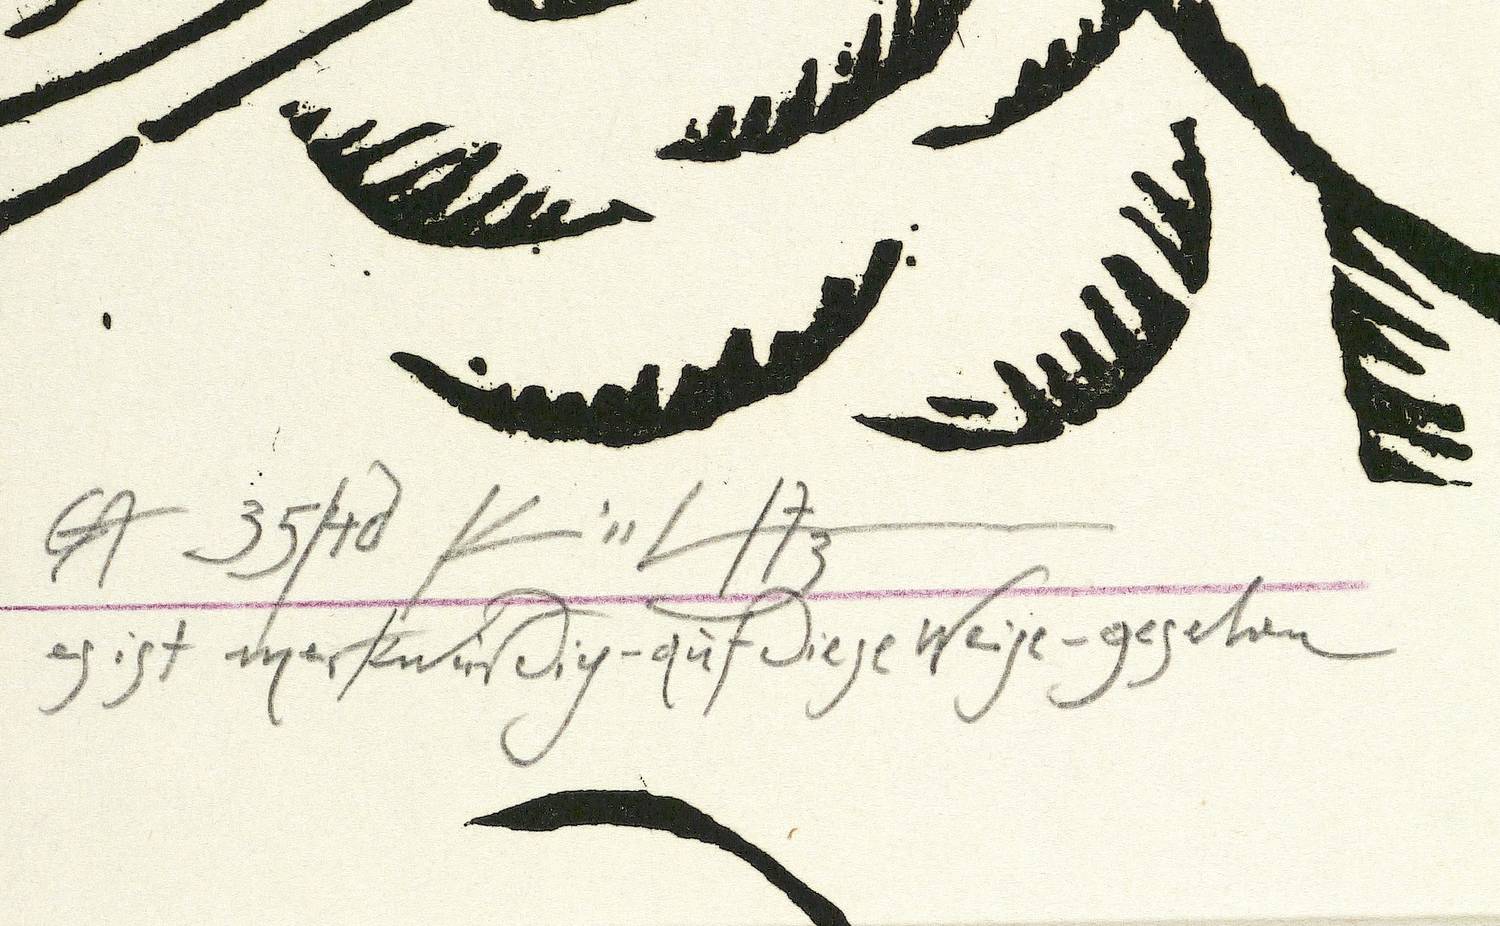 GA 35/40
es ist merkwürdig-auf diese Weise-gesehen